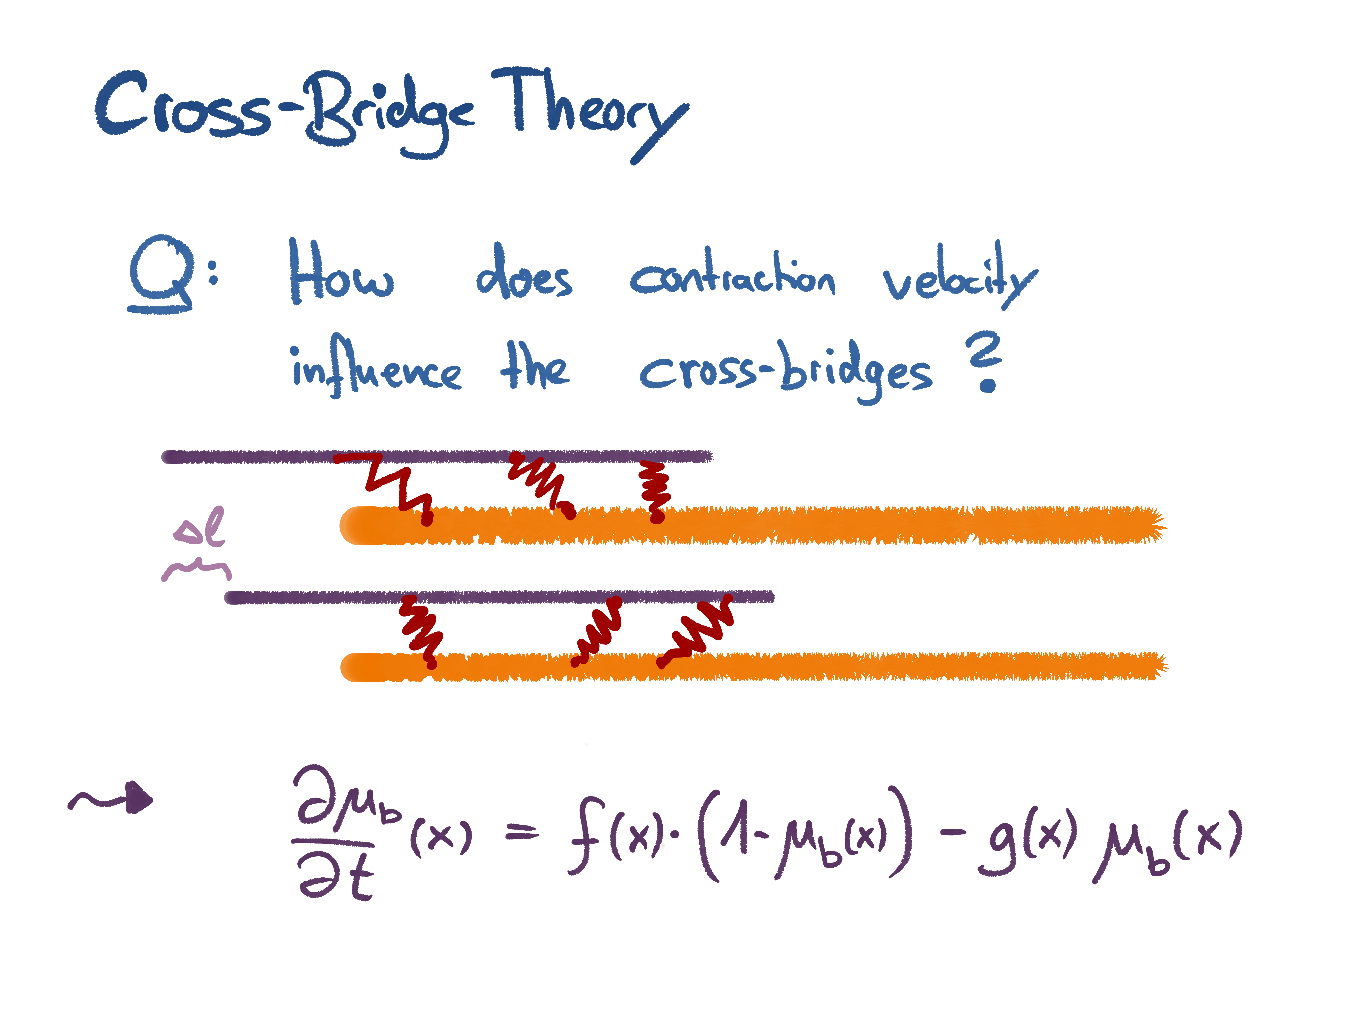 Cross-Bridge Theory
Q: How does contraction velocity
influence the cross-bridges?
Δl
∂μ_b/∂t (x) = f(x)·(1-μ_b(x)) - g(x) μ_b(x)